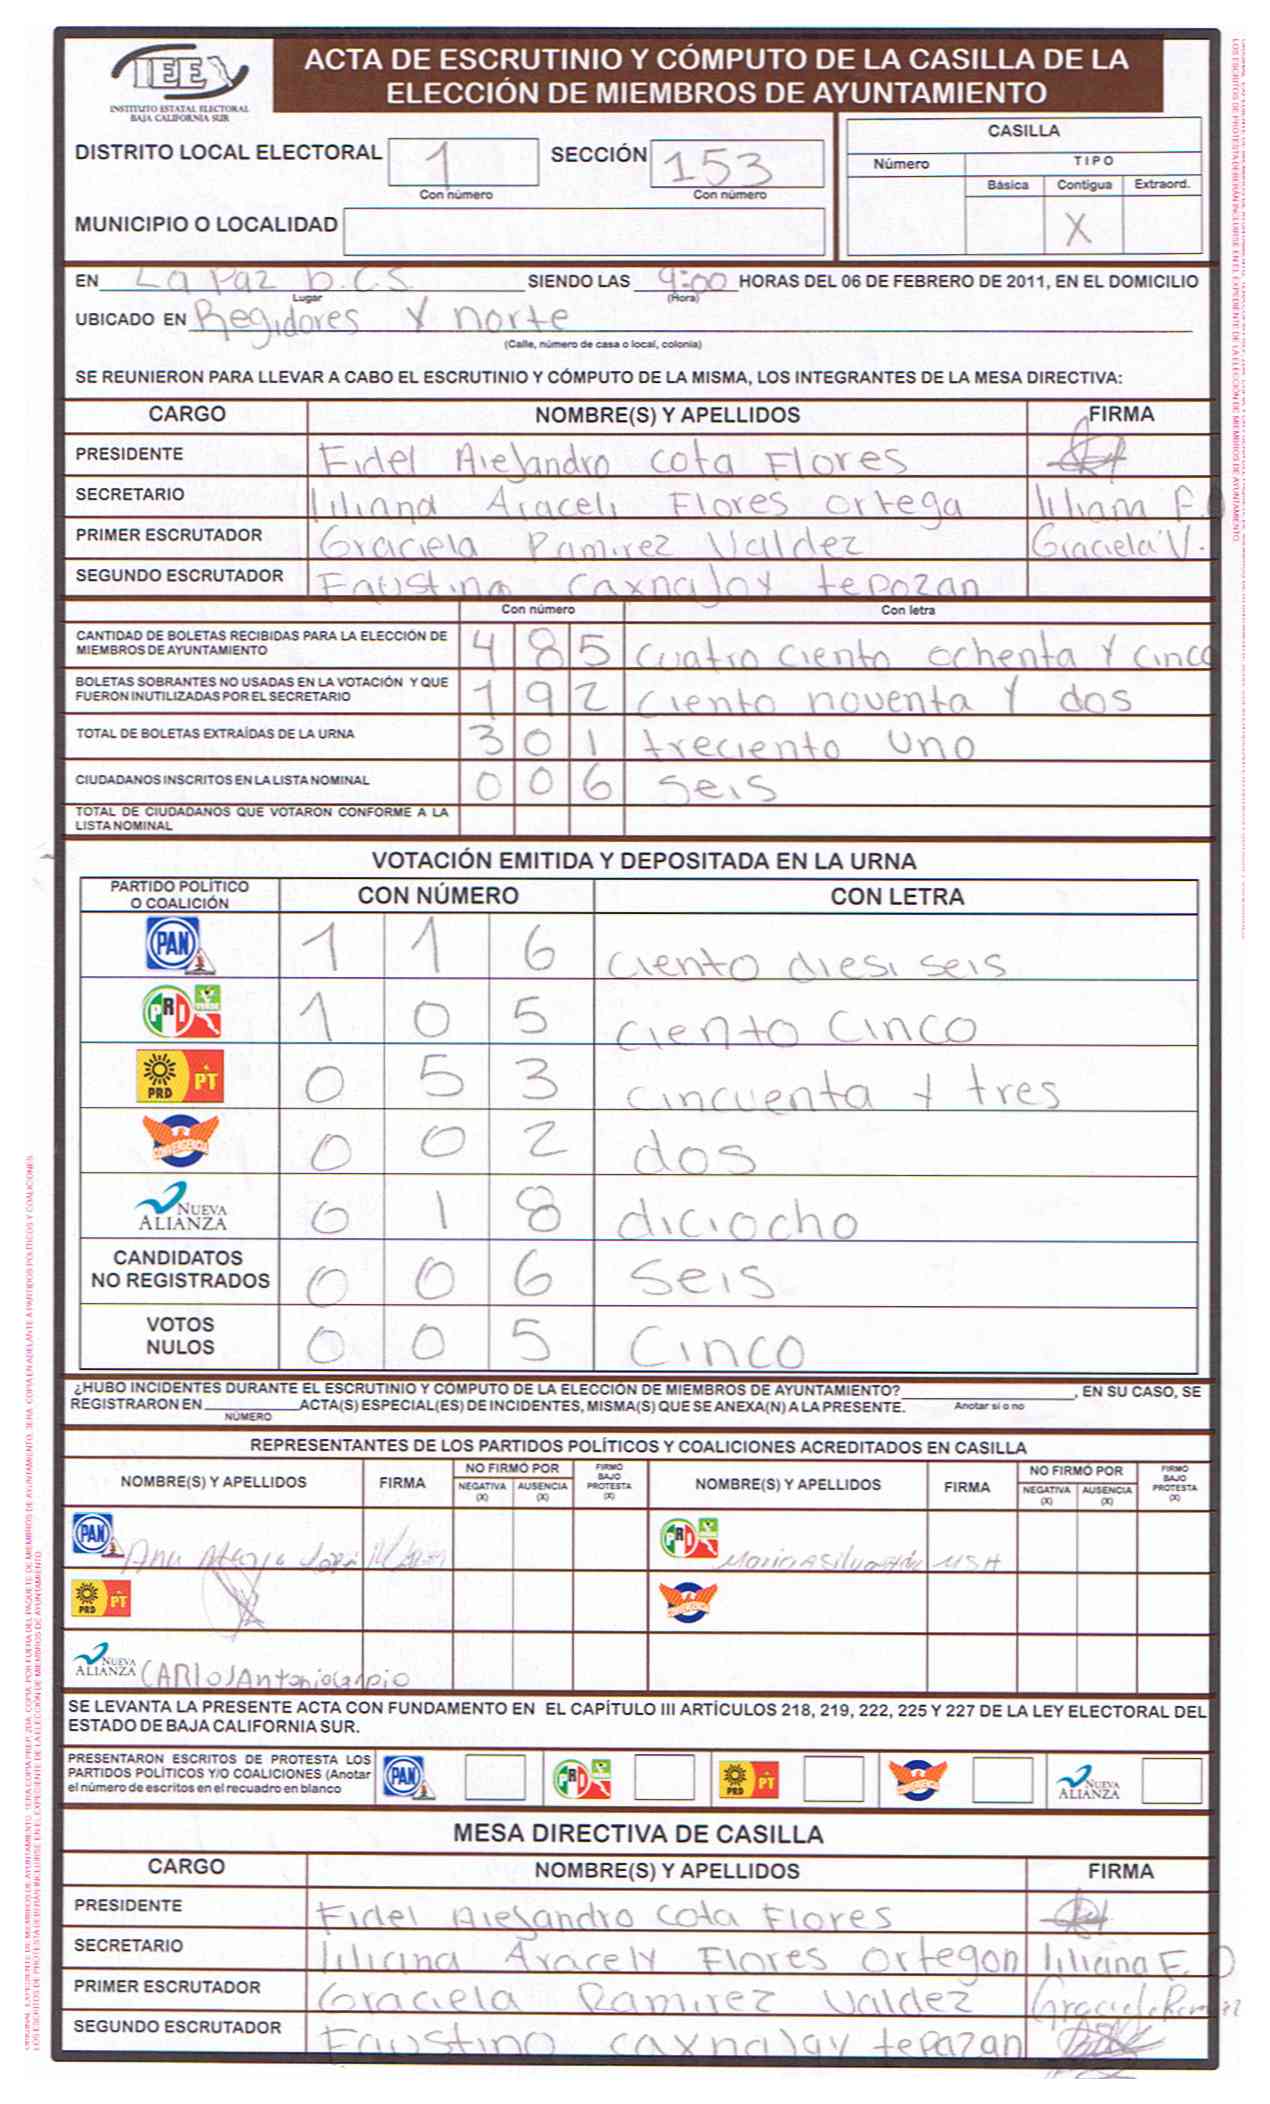 IEE
INSTITUTO ESTATAL ELECTORAL
BAJA CALIFORNIA SUR
ACTA DE ESCRUTINIO Y CÓMPUTO DE LA CASILLA DE LA
ELECCIÓN DE MIEMBROS DE AYUNTAMIENTO
DISTRITO LOCAL ELECTORAL 1 SECCIÓN 153
Con número Con número
MUNICIPIO O LOCALIDAD
CASILLA
Número TIPO
Básica Contigua Extraord.
X
EN La Paz b.c.s SIENDO LAS 9:00 HORAS DEL 06 DE FEBRERO DE 2011, EN EL DOMICILIO
Lugar (Hora)
UBICADO EN Regidores Y norte
(Calle, número de casa o local, colonia)
SE REUNIERON PARA LLEVAR A CABO EL ESCRUTINIO Y CÓMPUTO DE LA MISMA, LOS INTEGRANTES DE LA MESA DIRECTIVA:
CARGO NOMBRE(S) Y APELLIDOS FIRMA
PRESIDENTE Fidel Alejandro cota Flores
SECRETARIO liliana Araceli Flores ortega liliam F.O
PRIMER ESCRUTADOR Graciela Ramirez Valdez Graciela V.
SEGUNDO ESCRUTADOR Faustino caxnajoy tepozan
Con número Con letra
CANTIDAD DE BOLETAS RECIBIDAS PARA LA ELECCIÓN DE
MIEMBROS DE AYUNTAMIENTO 4 8 5 cuatro ciento ochenta Y cinco
BOLETAS SOBRANTES NO USADAS EN LA VOTACIÓN Y QUE
FUERON INUTILIZADAS POR EL SECRETARIO 1 9 2 ciento noventa Y dos
TOTAL DE BOLETAS EXTRAÍDAS DE LA URNA 3 0 1 treciento uno
CIUDADANOS INSCRITOS EN LA LISTA NOMINAL 0 0 6 seis
TOTAL DE CIUDADANOS QUE VOTARON CONFORME A LA
LISTA NOMINAL
VOTACIÓN EMITIDA Y DEPOSITADA EN LA URNA
PARTIDO POLÍTICO
O COALICIÓN CON NÚMERO CON LETRA
PAN 1 1 6 ciento diesi seis
PRI VERDE 1 0 5 ciento cinco
PRD PT 0 5 3 cincuenta y tres
CONVERGENCIA 0 0 2 dos
NUEVA
ALIANZA 0 1 8 diciocho
CANDIDATOS
NO REGISTRADOS 0 0 6 seis
VOTOS
NULOS 0 0 5 cinco
¿HUBO INCIDENTES DURANTE EL ESCRUTINIO Y CÓMPUTO DE LA ELECCIÓN DE MIEMBROS DE AYUNTAMIENTO? , EN SU CASO, SE
REGISTRARON EN ACTA(S) ESPECIAL(ES) DE INCIDENTES, MISMA(S) QUE SE ANEXA(N) A LA PRESENTE. Anotar si o no
NÚMERO
REPRESENTANTES DE LOS PARTIDOS POLÍTICOS Y COALICIONES ACREDITADOS EN CASILLA
NOMBRE(S) Y APELLIDOS FIRMA NO FIRMÓ POR NEGATIVA (X) AUSENCIA (X) FIRMO BAJO PROTESTA (X) NOMBRE(S) Y APELLIDOS FIRMA NO FIRMÓ POR NEGATIVA (X) AUSENCIA (X) FIRMO BAJO PROTESTA (X)
PAN Ana PRI VERDE MSA
PRD PT CONVERGENCIA
NUEVA
ALIANZA CARlos Antonio
SE LEVANTA LA PRESENTE ACTA CON FUNDAMENTO EN EL CAPÍTULO III ARTÍCULOS 218, 219, 222, 225 Y 227 DE LA LEY ELECTORAL DEL
ESTADO DE BAJA CALIFORNIA SUR.
PRESENTARON ESCRITOS DE PROTESTA LOS
PARTIDOS POLÍTICOS Y/O COALICIONES (Anotar
el número de escritos en el recuadro en blanco
PAN PRI PRD PT CONVERGENCIA NUEVA ALIANZA
MESA DIRECTIVA DE CASILLA
CARGO NOMBRE(S) Y APELLIDOS FIRMA
PRESIDENTE Fidel Alejandro Cota Flores
SECRETARIO liliana Aracely Flores Ortegon liliana F. O
PRIMER ESCRUTADOR Graciela Ramirez Valdez Graciela Ramirez
SEGUNDO ESCRUTADOR Faustino caxnajay tepazan